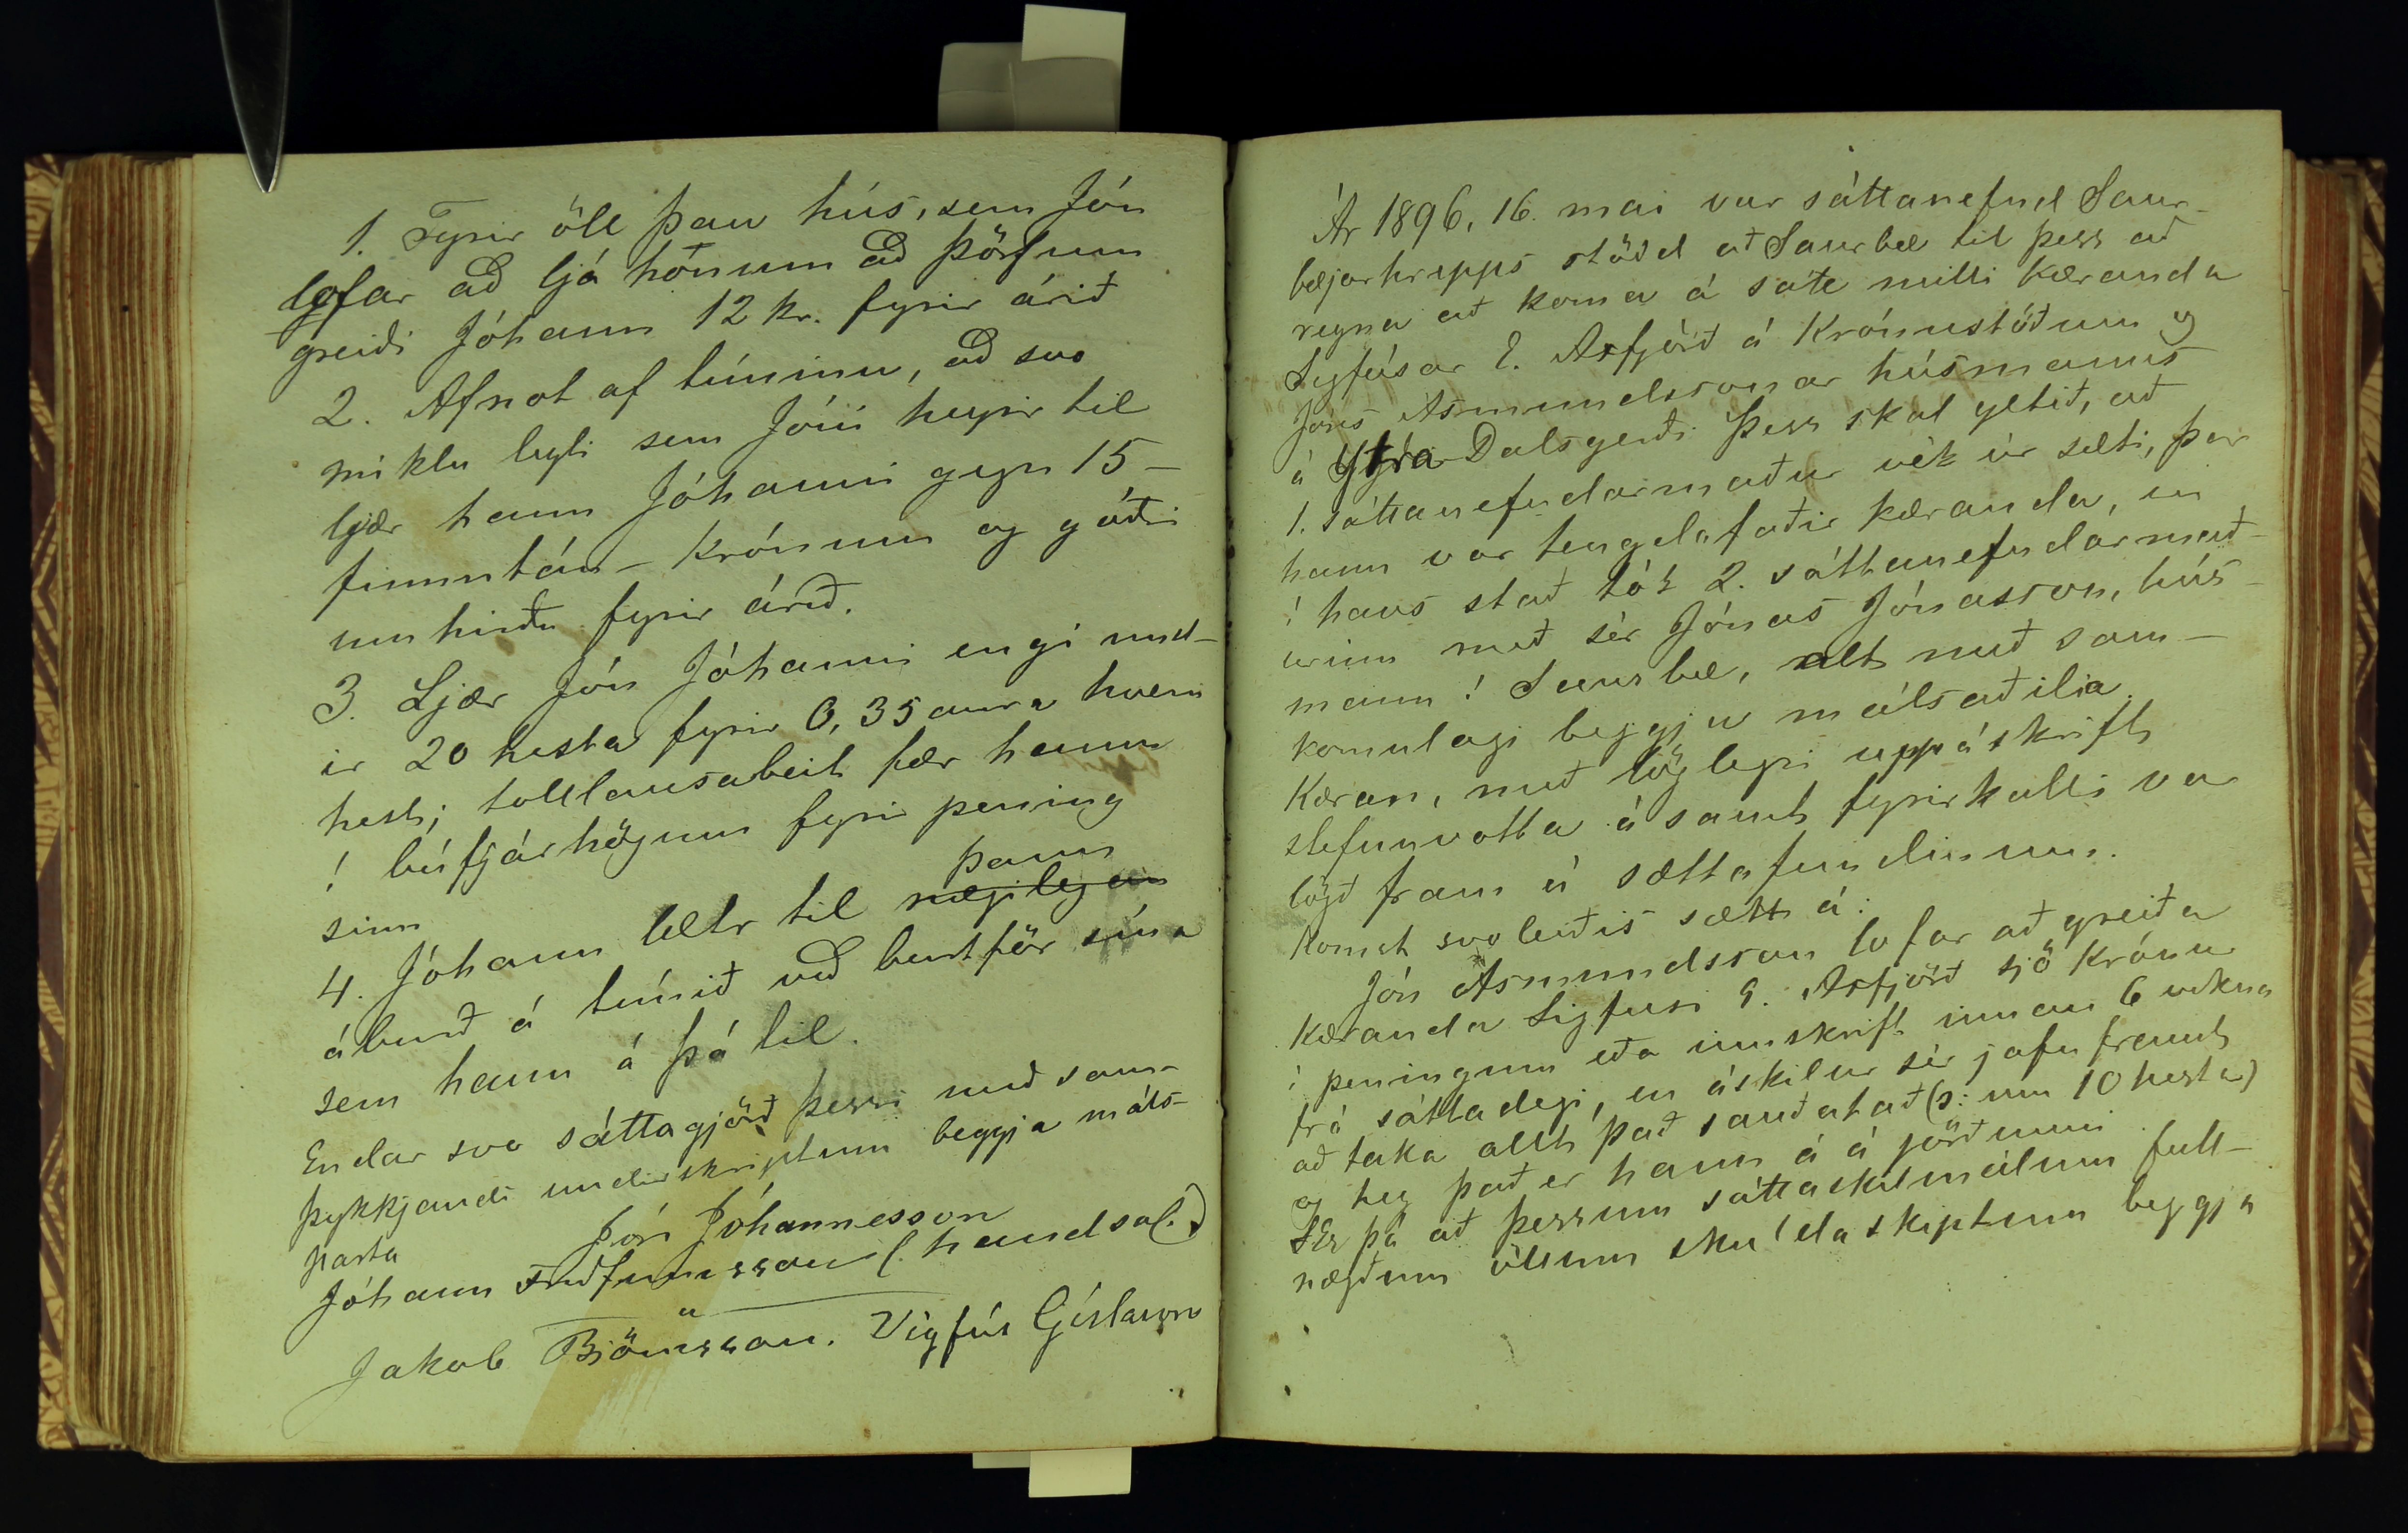 1. Fyrir öll þau hús, sem Jón
lofar að ljá hónum að þörfum
greiði Jóhann 12 kr. fyrir árið
2. Afnot af túninu, að svo
miklu leyti sem Jóni heyrir til
ljær hann Jóhanni gegn 15 -
fimmtán - krónum og góðri
umhirðu fyrir árið.
3. Ljær Jón Jóhanni engi und-
ir 20 hesta fyrir 0,35 aura hvern
hest; tolllausabeit fær hann
í búfjárhögum fyrir pening
sinn
þann
4. Jóhann lætr til nægilegan
áburð á túnið við burtför sína
sem hann á þá til.
Endar svo sáttagjörð þessi með sam-
þykkjandi undirskriptum beggja máls-
parta
Jón Jóhannesson
Jóhann Friðfinnsson (handsal.)
Jakob Björnsson. Vigfús Gíslason
Ár 1896, 16. mai var sáttanefnd Saur-
bæjarhrepps stödd að Saurbæ til þess að
reyna að koma á sátt milli kæranda
Sigfúsar E. Axfjörð á Krónustöðum og
Jóns Ásmundssonar húsmanns
á Ytra-Dalsgerði Þess skal getið, að
1. sáttanefndarmaður vék úr sæti, þar
hann var tengdafaðir kæranda, en
í hans stað tók 2. sáttanefndarmað-
urinn með sér Jónas Jónasson, hús-
mann í Saurbæ, allt með sam-
komulagi beggju málsaðilia.
Kæran, með löglegri uppáskrift
stefnuvotta ásamt fyrirkalli var
lögð fram á sættafundinum.
Komst svoleiðis sætt á:
Jón Ásmundsson lofar að greiða
kæranda Sigfúsi E. Axfjörð sjö krónur
í peningum eða innskrift innan 6 vikna
frá sáttadegi, en áskilur sér jafnframt
að taka allt það sauðatað (ɔ: um 10 hesta)
og hey það er hann á á jörðunni.
Er þá að þessum sáttaskilmálum full-
nægðum öllum skuldaskiptum beggja